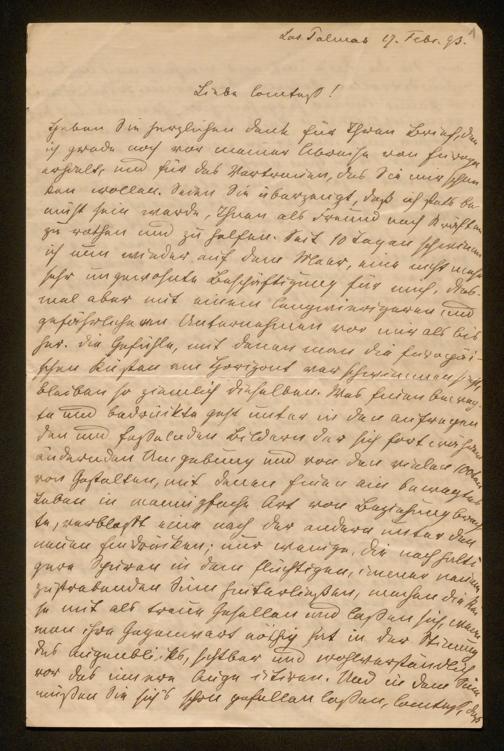 Las Palmas 17. Febr. 93.
Liebe Comtesse!
Haben Sie herzlichen Dank für Ihren Brief, den
ich grade noch vor meiner Abreise von Europa
erhielt, und für das Vertrauen, das Sie mir schen
ken wollen. Seien Sie überzeugt, daß ich stets be
müht sein werde, Ihnen als Freund nach Kräften
zu rathen und zu helfen. Seit 10 Tagen schwimme
ich nun wieder auf dem Meer, eine nicht mehr
sehr ungewohnte Beschäftigung für mich, dies
mal aber mit einem langwierigeren und
gefährlicheren Unternehmen vor mir als bis
her. Die Gefühle, mit denen man die europäi
schen Küsten am Horizont verschwimmen sieht,
bleiben so ziemlich dieselben. Was einen beweg
te und bedrückte geht unter in den aufregen
den und fesselnden Bildern der sich fortwährend
ändernden Umgebung und von den vielen
von Gestalten, mit denen einen ein bewegtes
Leben in mannigfache Art von Beziehung brach
te, verblaßt eine nach der andern unter den
neuen Eindrücken; nur wenige, die nachhalti
gere Spuren in dem flüchtigen, immer neuem
zustrebenden Sinn hinterließen, machen die Rei
se mit als treue Gesellen und laßen sich, wenn
man ihre Gegenwart nöthig hat in der Stimmung
des Augenblicks, sichtbar und wohlverstandlich
vor das innere Auge citiren. Und in dem Sinn
müßen Sie sich's schon gefallen laßen, Comtesse, daß